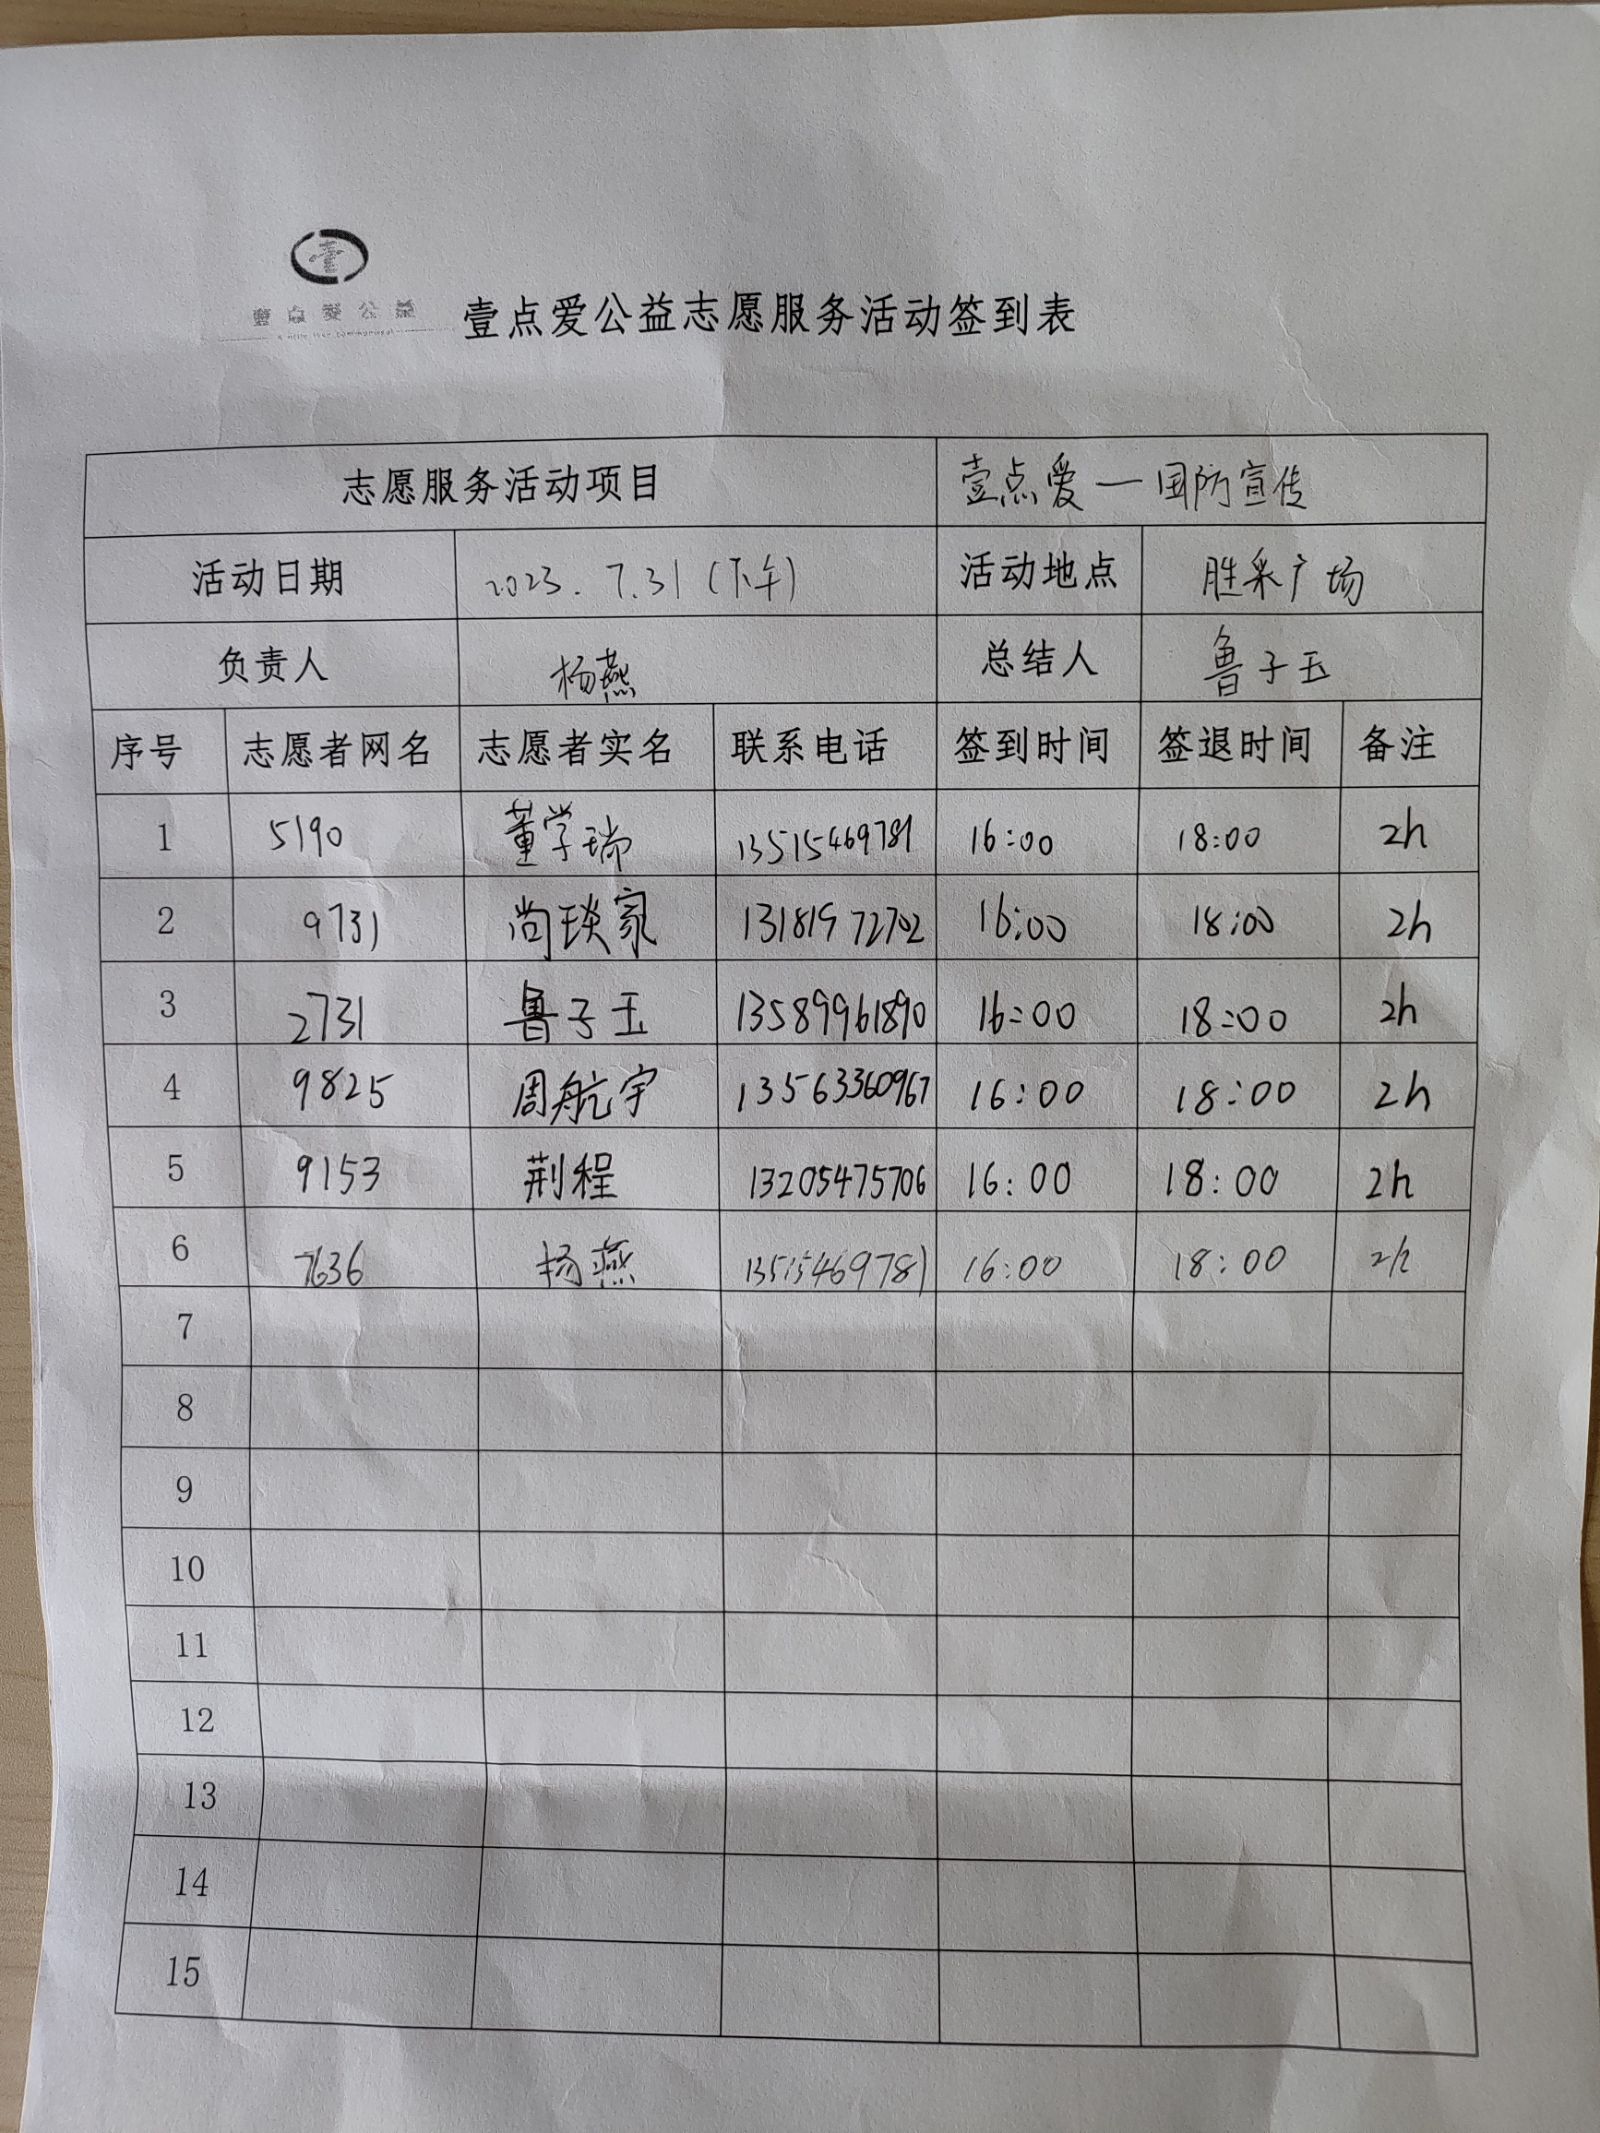 壹
壹点爱公益
壹点爱公益志愿服务活动签到表
志愿服务活动项目 壹点爱一国防宣传
活动日期 2023.7.31(下午) 活动地点 胜采广场
负责人 杨燕 总结人 鲁子玉
序号 志愿者网名 志愿者实名 联系电话 签到时间 签退时间 备注
1 5190 董学瑞 13515469781 16:00 18:00 2h
2 9731 尚琰家 13181972702 16:00 18:00 2h
3 2731 鲁子玉 13589961890 16:00 18:00 2h
4 9825 周航宇 13563360967 16:00 18:00 2h
5 9153 荆程 13205475706 16:00 18:00 2h
6 7636 杨燕 13515469781 16:00 18:00 2h
7
8
9
10
11
12
13
14
15